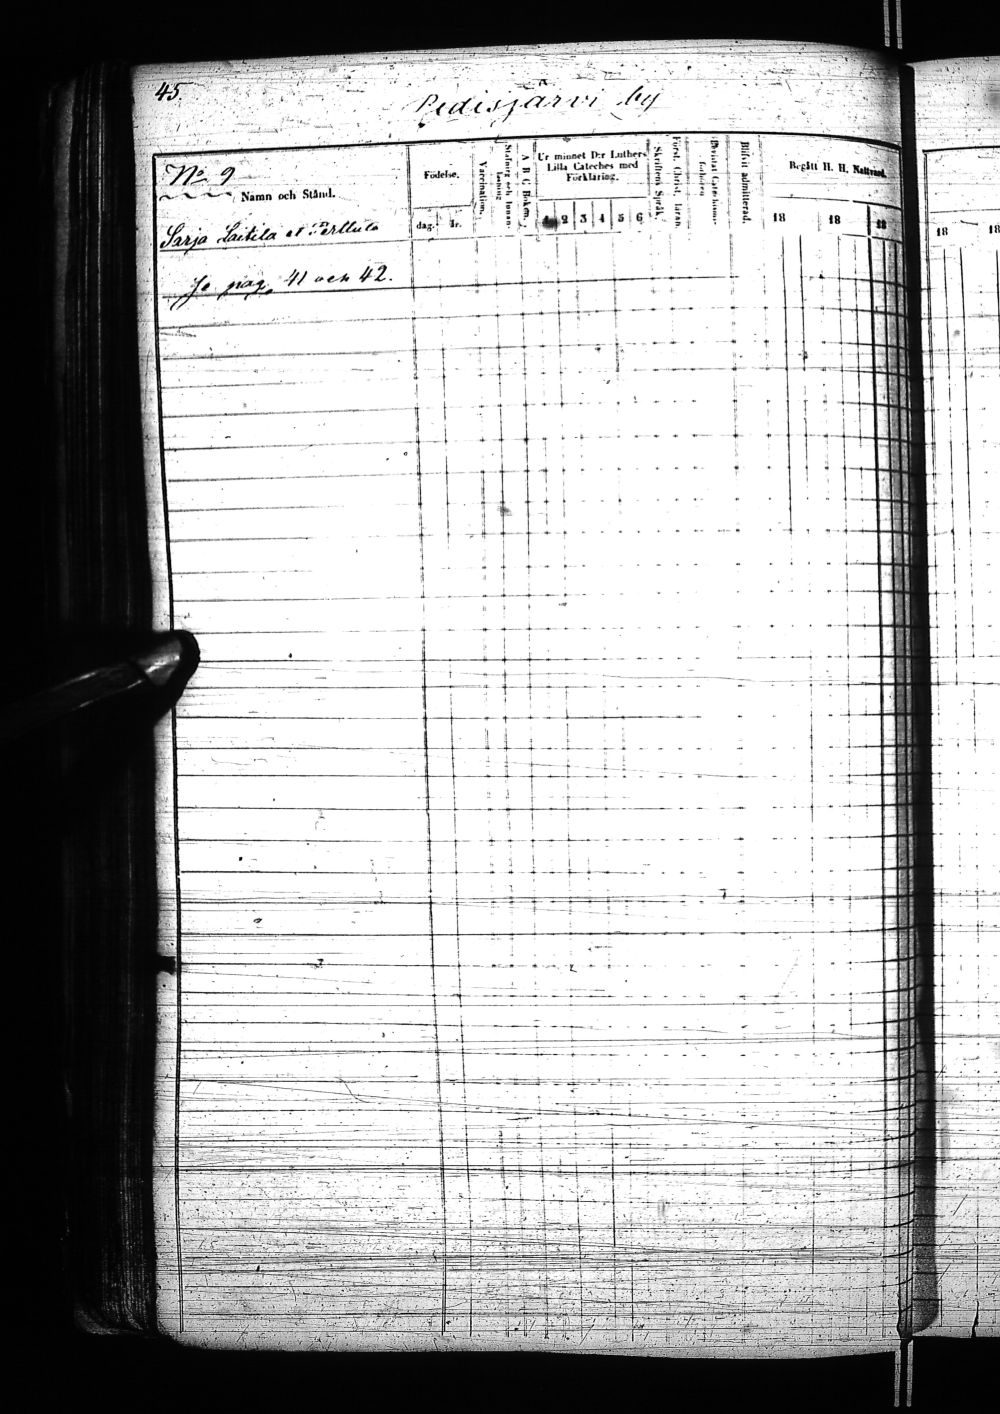 45.
Pedisjärvi by
No 9
Namn och Stånd.
Födelse.
dag. år.
Vaccination.
Stafning och Innanläsning
A B C Boken.
Ur minnet D:r Luthers Lilla Cateches med Förklaring.
1 2 3 4 5 6
Skriftens Språk.
Först. Christ. läran.
Bevistat Catechismi-förhören
Blifvit admitterad.
Begått H. H. Nattvard.
18 18 18
18 18
Sarja Laitila et Perttula
Se pag. 41 och 42.